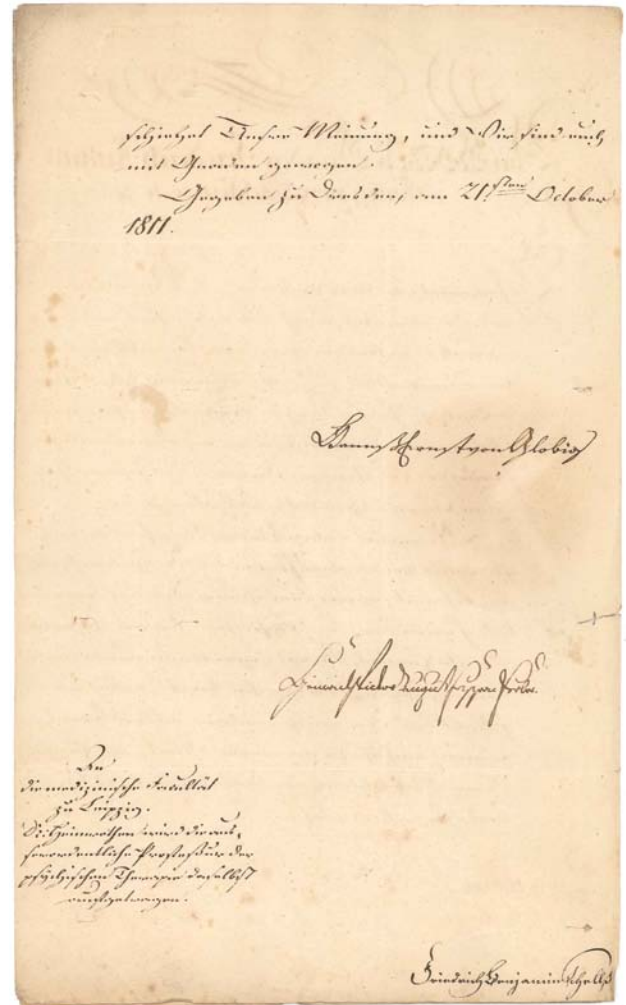 schiehet Unsre Meinung, und Wir sind euch
mit Gnaden gewogen.
Gegeben zu Dresden, am 21sten October
1811.
Hanns Ernst von Globig
Heinrich Victor August
An
die medizinische Facultät
zu Leipzig.
D. Heinrothen wird die aus-
serordentliche Professur der
psychischen Therapie daselbst
aufgetragen.
Friedrich Benjamin